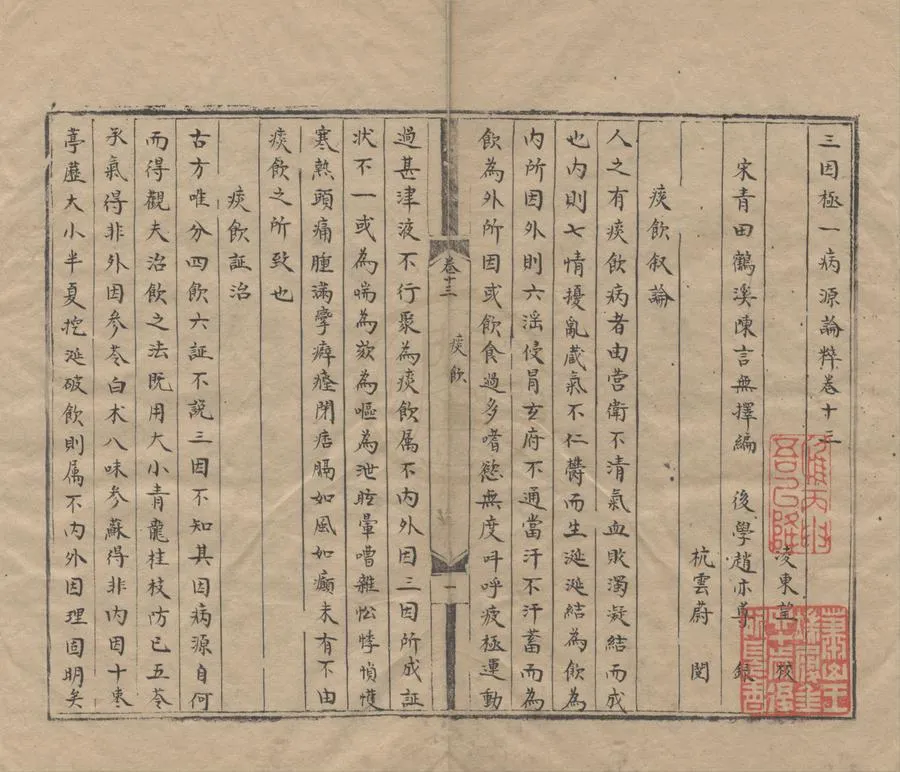 三因極一病源論粹卷十三
宋青田鶴溪陳言無擇編　後學趙亦尊錄
凌東莹校
杭雲蔚　閱
痰飲叙論
人之有痰飲病者由营衛不清氣血敗濁凝結而成
也内則七情擾亂蔵氣不仁欝而生涎涎結為飲為
内所因外則六淫侵冒玄府不通當汗不汗蓄而為
飲為外所因或飲食過多嗜慾無度呌呼疲極運動
卷十三　痰飲　一
過甚津液不行聚為痰飲属不内外因三因所成証
状不一或為喘為欬為嘔為泄眩暈嘈雜忪悸愩愯
寒熱頭痛腫滿攣癖癃閉痞膈如風如癲未有不由
痰飲之所致也
痰飲証治
古方唯分四飲六証不說三因不知其因病源自何
而得觀夫治飲之法既用大小青龍桂枝防已五苓
承氣得非外因參苓白术八味參蘇得非内因十枣
葶藶大小半夏控涎破飲則属不内外因理固明矣